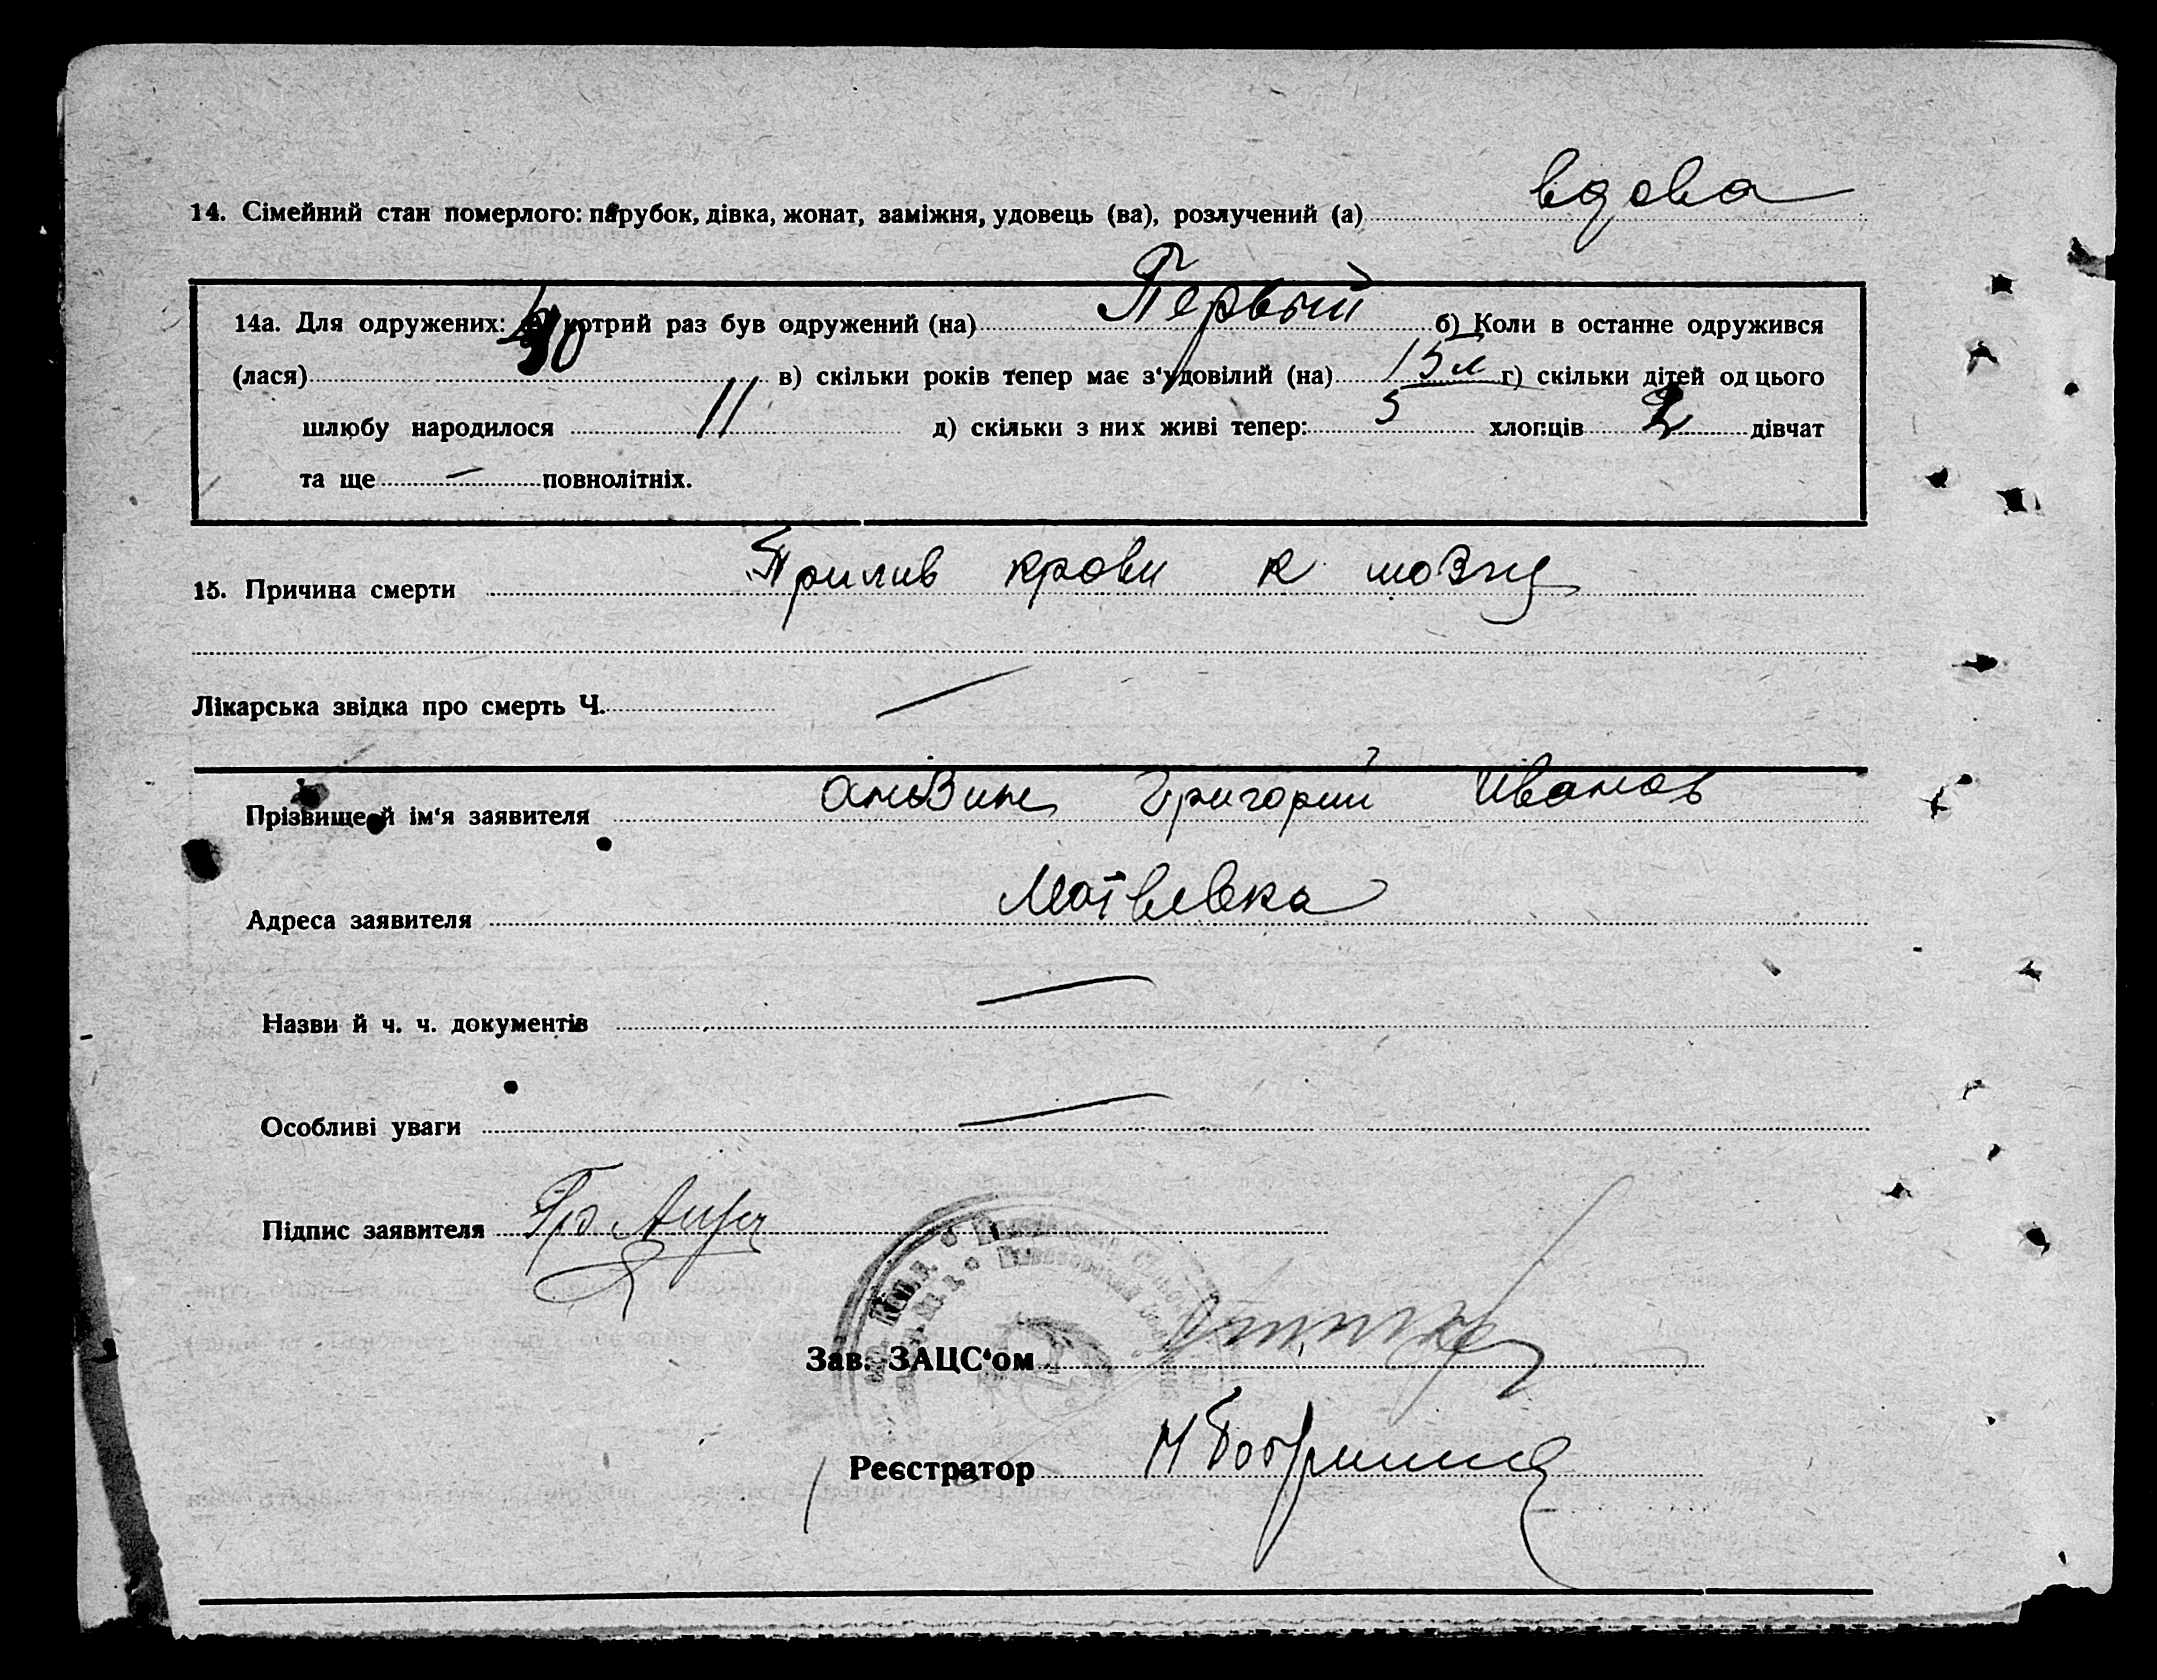 14. Сімейний стан померлого: парубок, дівка, жонат, заміжня, удовець (ва), розлучений (а) вдова
14а. Для одружених: котрий раз був одружений (на) Первый б) Коли в останне одружився
(лася) в) скільки років тепер має з‘удовілий (на) 15 л г) скільки дітей од цього
шлюбу народилося 11 д) скільки з них живі тепер: 5 хлопців 2 дівчат
та ще — повнолітніх.
15. Причина смерти Прилив крови к мозгу
Лікарська звідка про смерть Ч. —
Прізвище й ім‘я заявителя Григорий Иванов
Адреса заявителя Матвеевка
Назви й ч. ч. документів —
Особливі уваги —
Підпис заявителя
Зав. ЗАЦС‘ом
Реєстратор